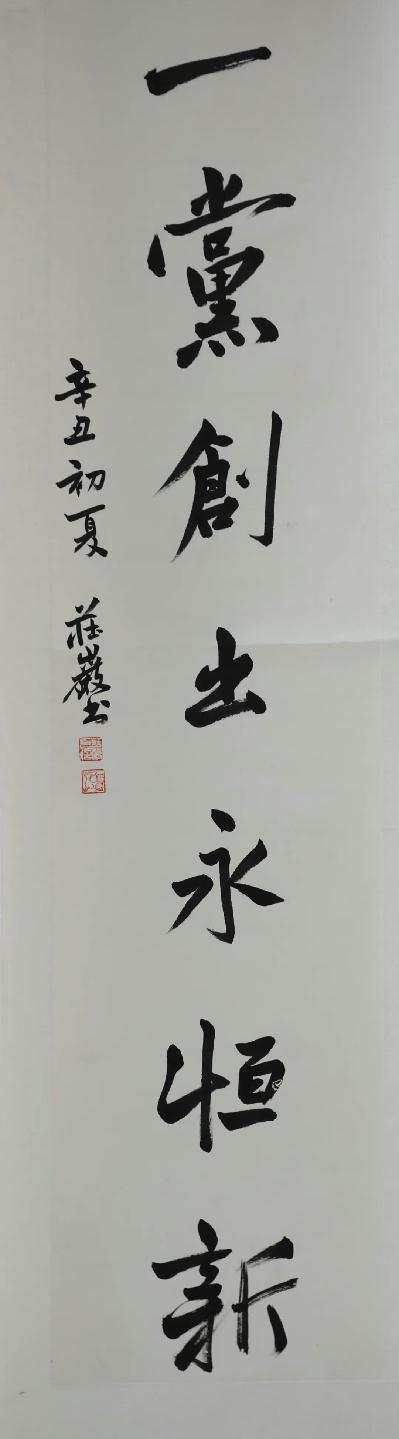 一黨創出永恒新
辛丑初夏 莊嚴书